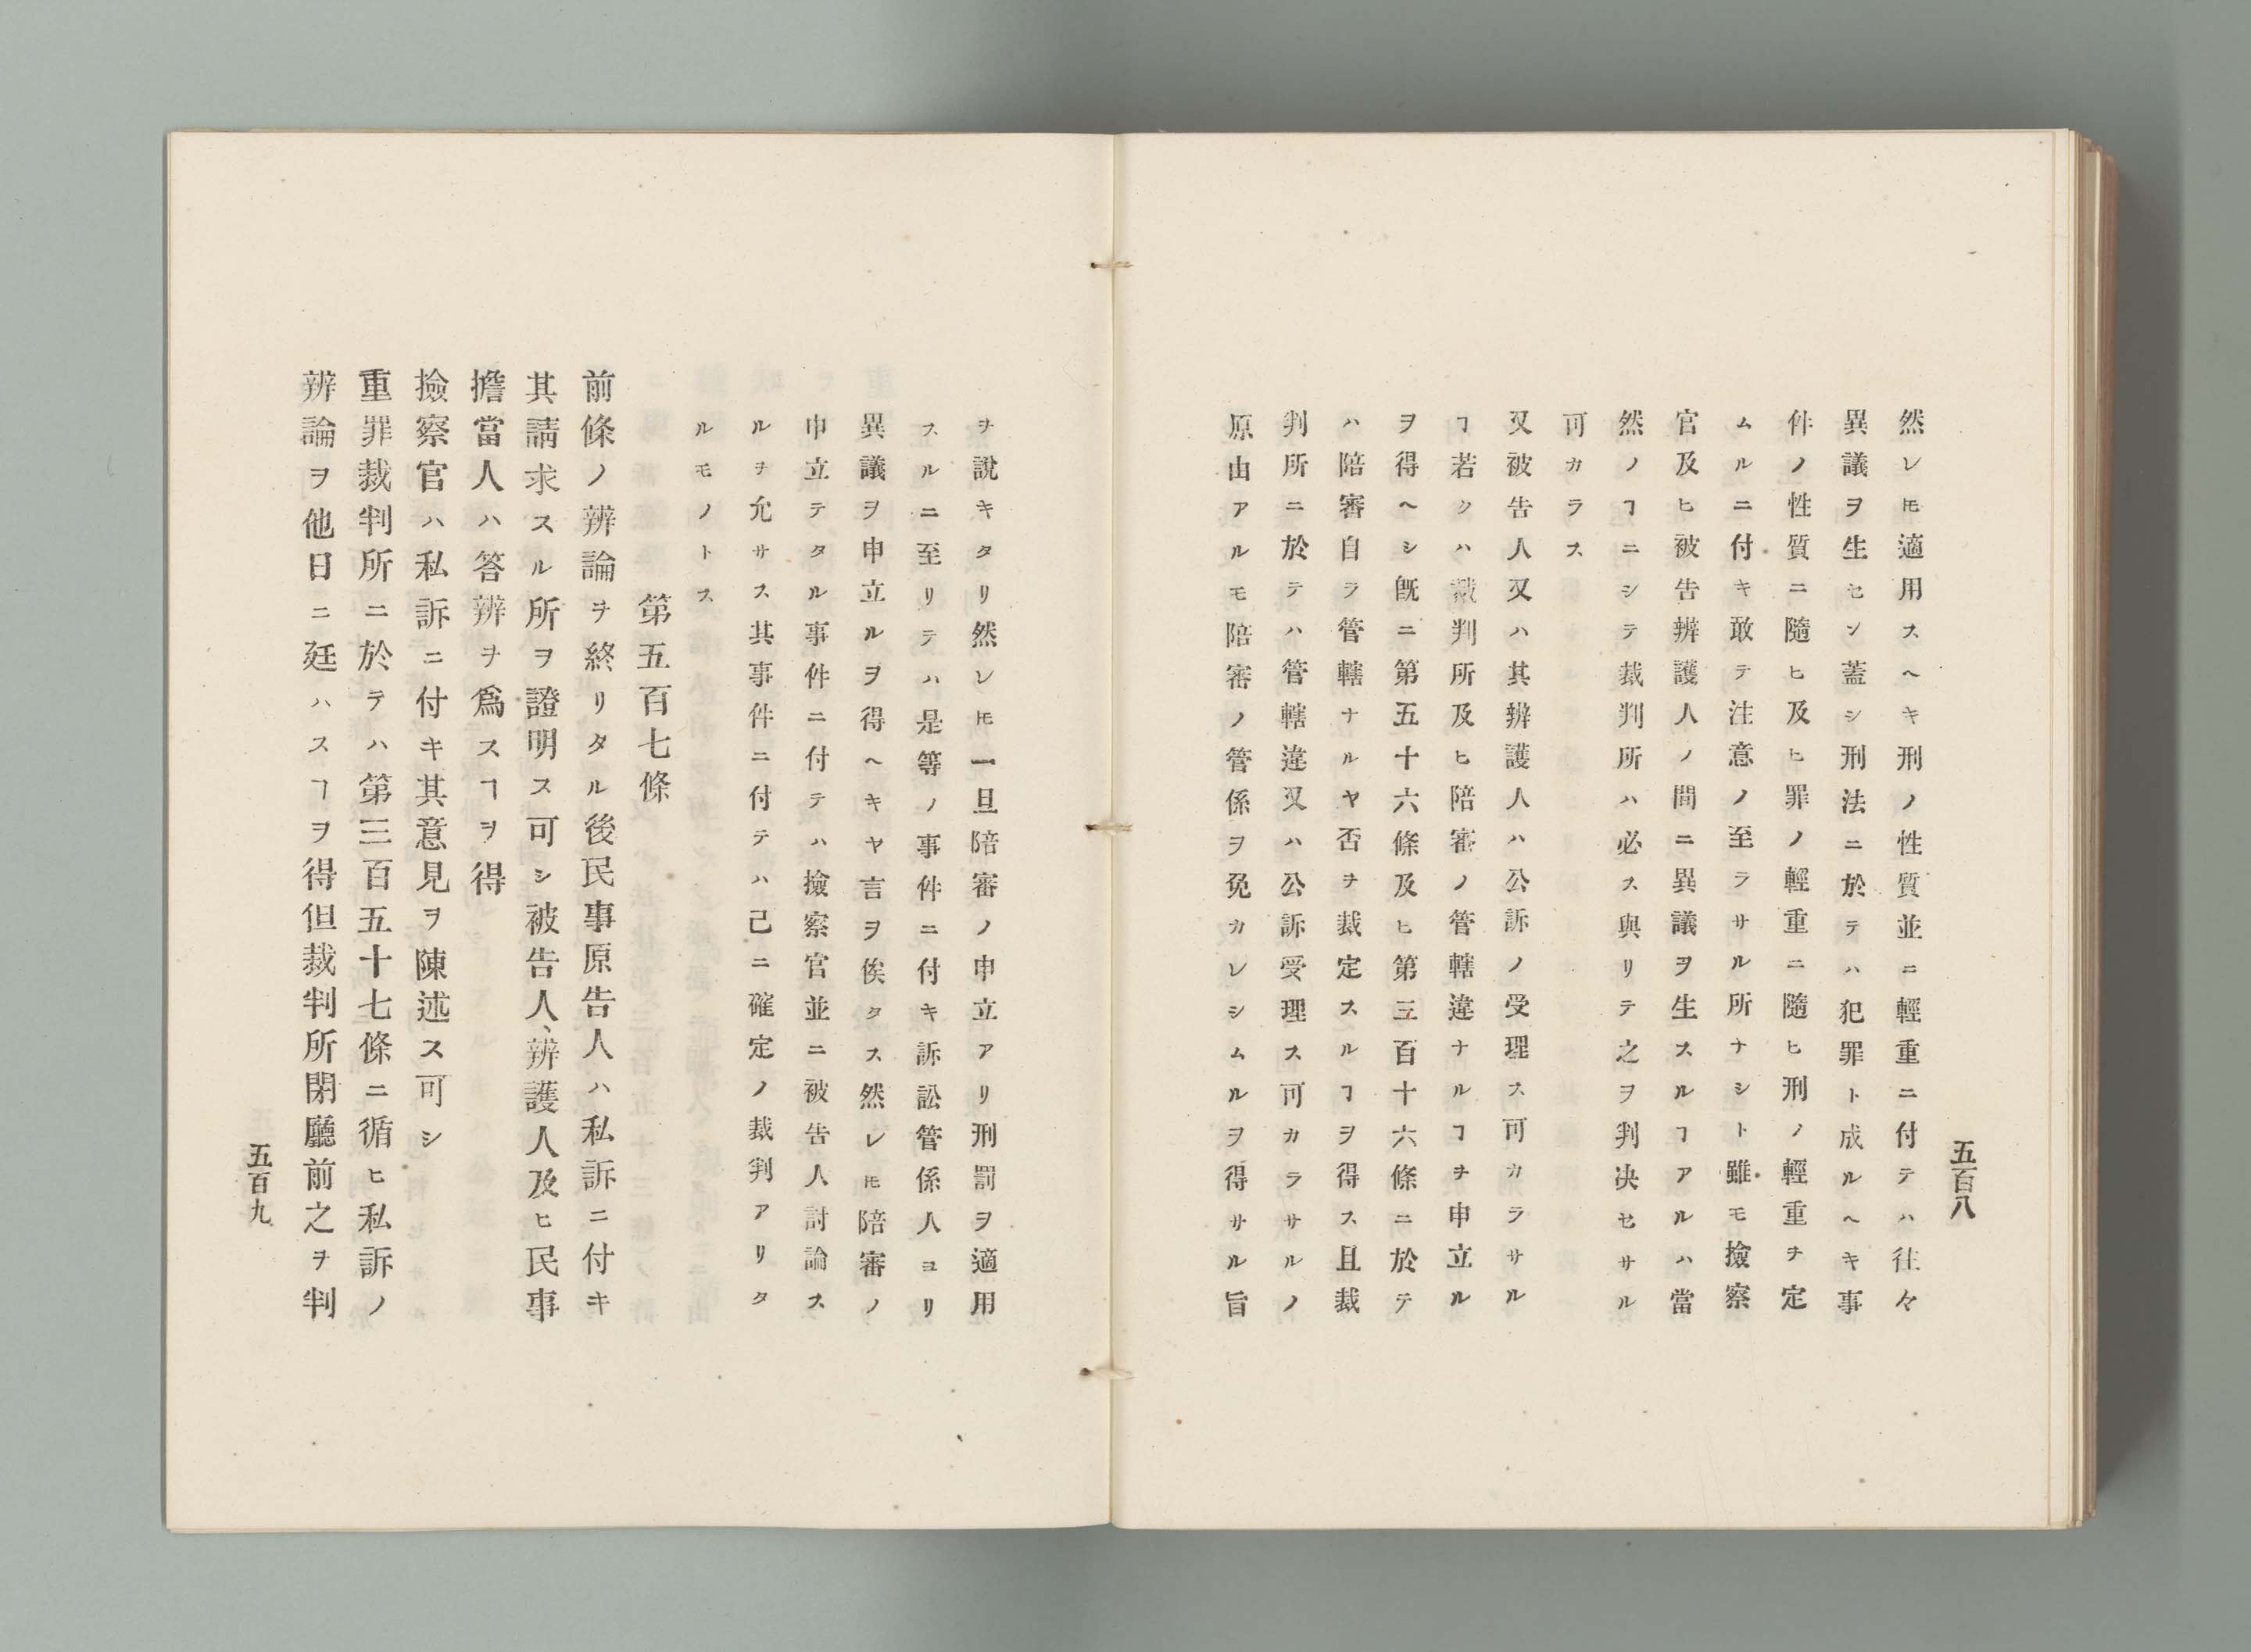 五百八
然レㇳモ適用スヘキ刑ノ性質並ニ輕重ニ付テハ往々
異議ヲ生セン蓋シ刑法ニ於テハ犯罪ト成ルヘキ事
件ノ性質ニ隨ヒ及ヒ罪ノ輕重ニ隨ヒ刑ノ輕重ヲ定
ムルニ付キ敢テ注意ノ至ラサル所ナシト雖モ撿察
官及ヒ被告辨護人ノ間ニ異議ヲ生スルヿアルハ當
然ノヿニシテ裁判所ハ必ス與リテ之ヲ判决セサル
可カラス
又被告人又ハ其辨護人ハ公訴ノ受理ス可カラサル
ヿ若クハ裁判所及ヒ陪審ノ管轄違ナルヿヲ申立ル
ヲ得ヘシ既ニ第五十六條及ヒ第三百十六條ニ於テ
ハ陪審自ラ管轄ナルヤ否ヲ裁定スルヿヲ得ス且裁
判所ニ於テハ管轄違又ハ公訴受理ス可カラサルノ
原由アルモ陪審ノ管係ヲ免カレシムルヲ得サル旨
ヲ說キタリ然レㇳモ一旦陪審ノ申立アリ刑罰ヲ適用
スルニ至リテハ是等ノ事件ニ付キ訴訟管係人ヨリ
異議ヲ申立ルヲ得ヘキヤ言ヲ俟タス然レㇳモ陪審ノ
申立テタル事件ニ付テハ撿察官並ニ被告人討論ス
ルヲ允サス其事件ニ付テハ己ニ確定ノ裁判アリタ
ルモノトス
第五百七條
前條ノ辨論ヲ終リタル後民事原告人ハ私訴ニ付キ
其請求スル所ヲ證明ス可シ被告人、辨護人及ヒ民事
擔當人ハ答辨ヲ爲スヿヲ得
撿察官ハ私訴ニ付キ其意見ヲ陳述ス可シ
重罪裁判所ニ於テハ第三百五十七條ニ循ヒ私訴ノ
辨論ヲ他日ニ延ハスヿヲ得但裁判所閉廳前之ヲ判
五百九